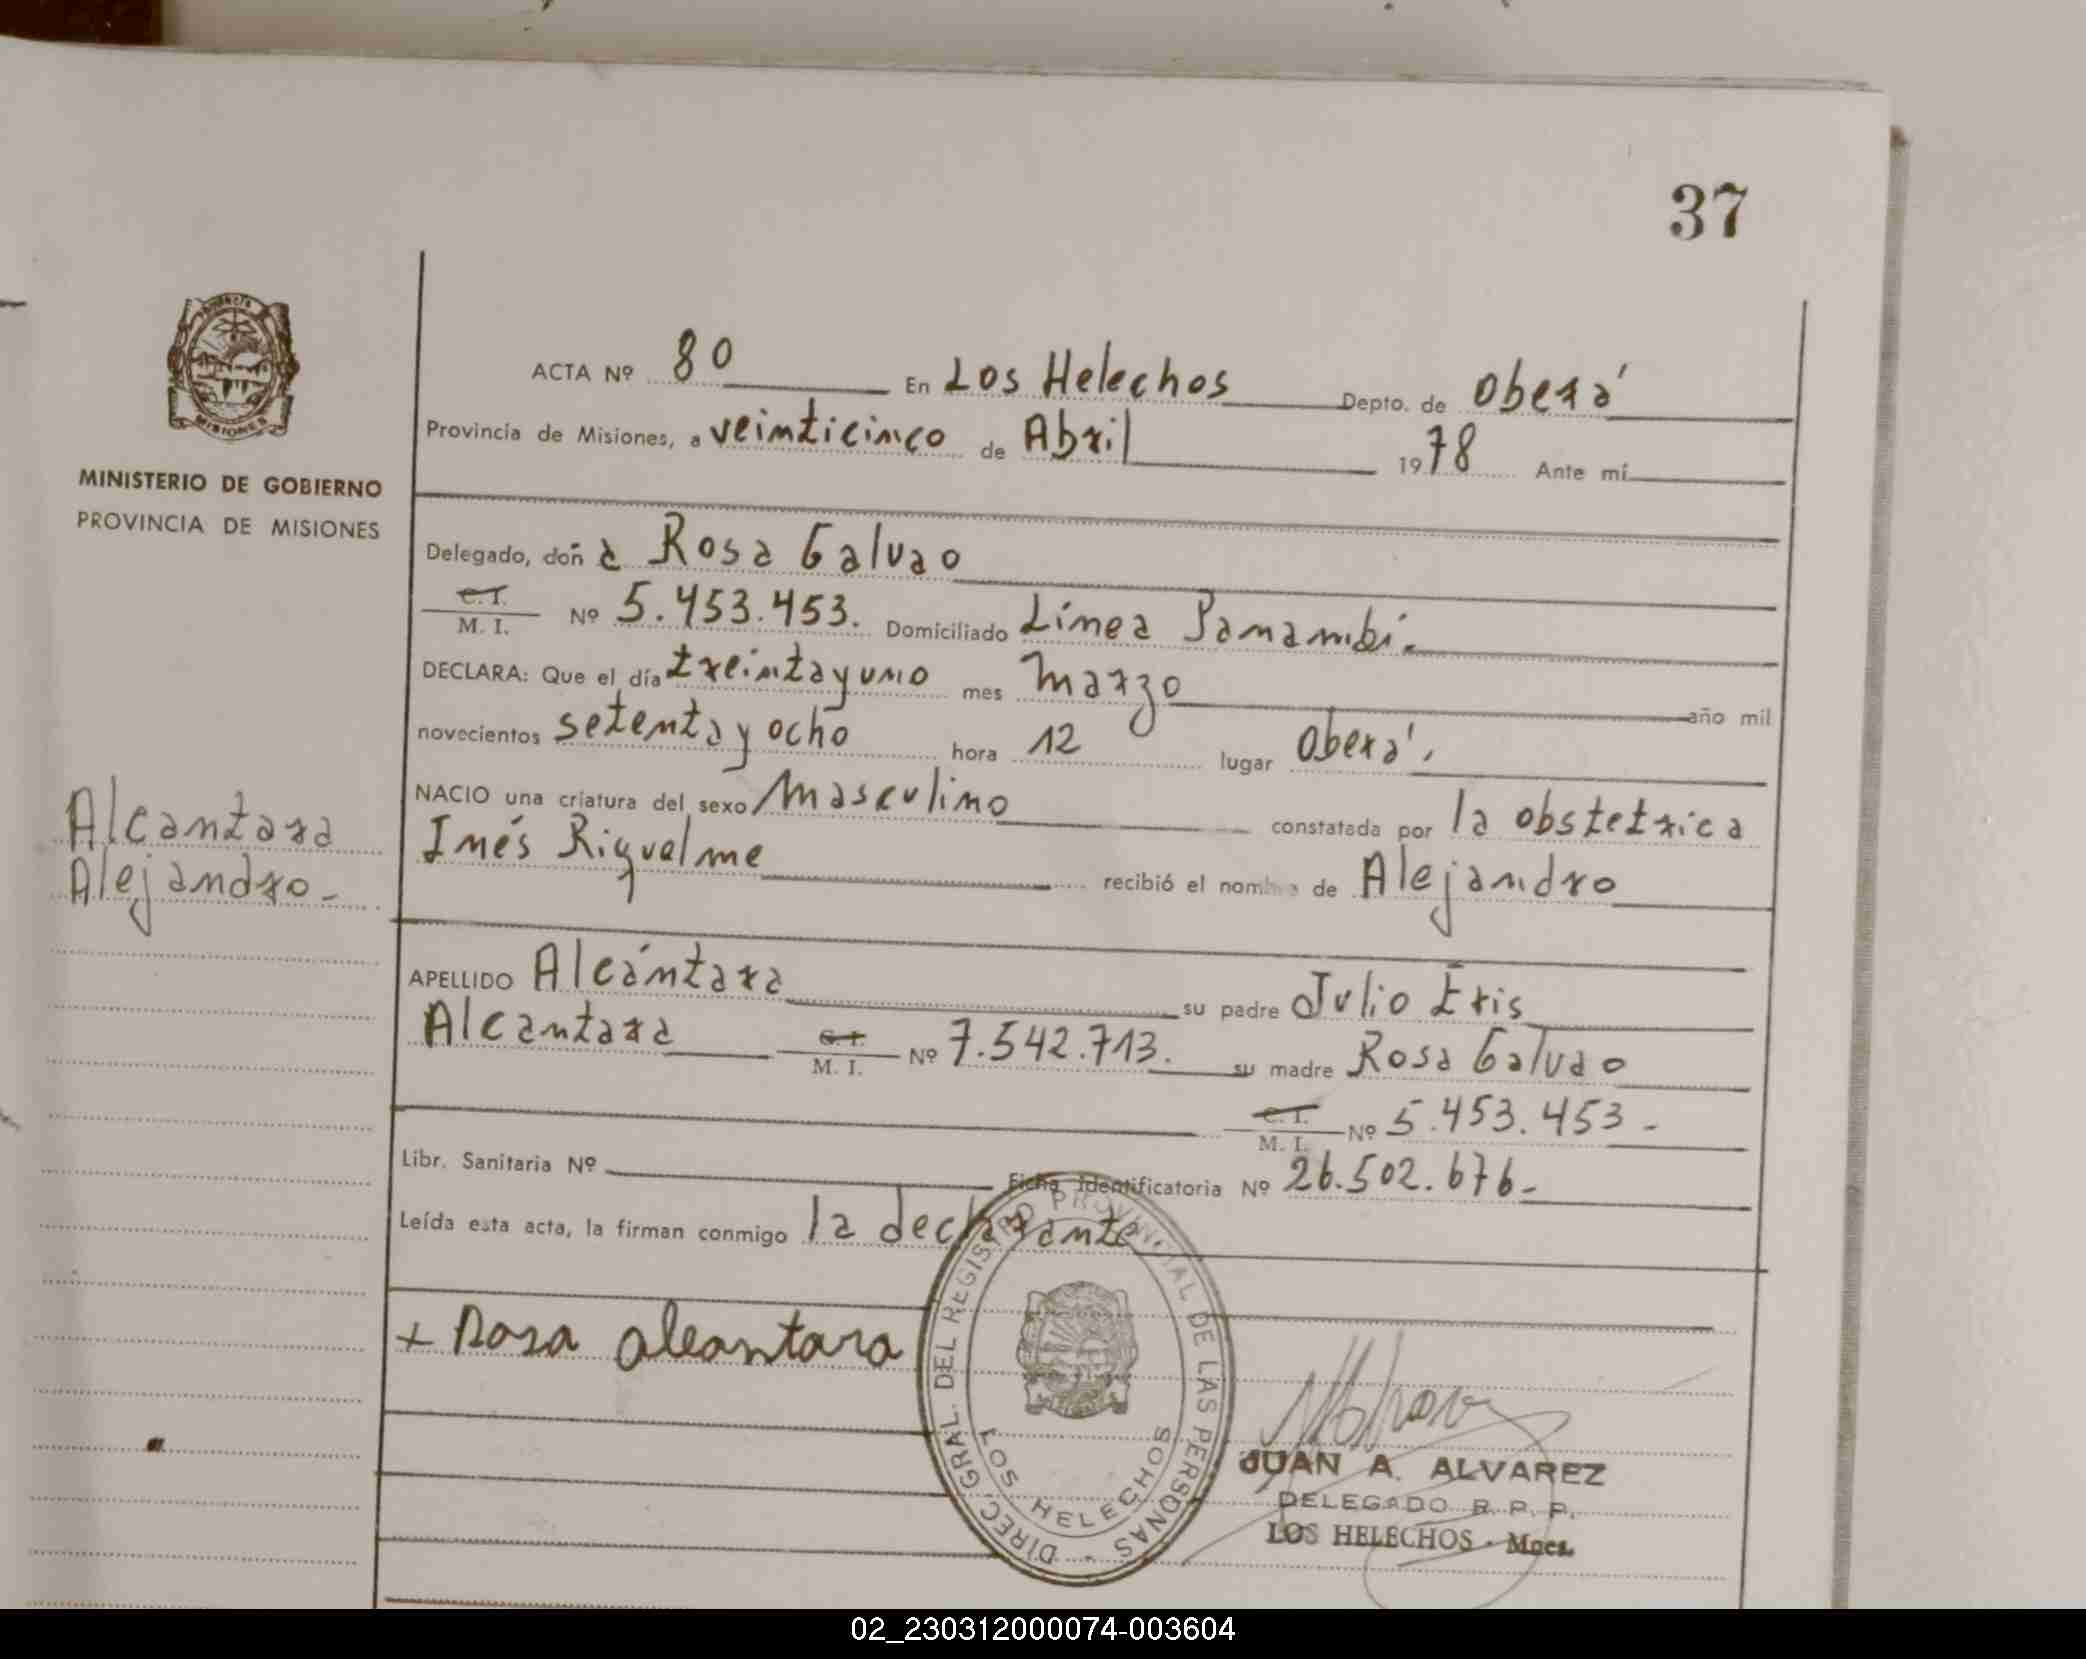 37
MISIONES
MINISTERIO DE GOBIERNO
PROVINCIA DE MISIONES
Alcantara
Alejandro-
ACTA Nº 80 En Los Helechos Depto. de Oberá
Provincia de Misiones, a veinticinco de Abril 1978 Ante mí
Delegado, doña Rosa Galvao
C. I.
M. I. Nº 5.453.453. Domiciliado Línea Panambi.
DECLARA: Que el día treinta y uno mes marzo año mil
novecientos setenta y ocho hora 12 lugar Oberá.
NACIO una criatura del sexo masculino constatada por la obstetrica
Inés Riquelme recibió el nombre de Alejandro
APELLIDO Alcántara su padre Julio Eris
Alcantara C. I.
M. I. Nº 7.542.713. su madre Rosa Galvao
C. I.
M. I. Nº 5.453.453-
Libr. Sanitaria Nº Ficha Identificatoria Nº 26.502.676-
Leída esta acta, la firman conmigo la declarante.
+ Rosa alcantara
DIREC. GRAL. DEL REGISTRO PROVINCIAL DE LAS PERSONAS
LOS HELECHOS
JUAN A. ALVAREZ
DELEGADO R. P. P.
LOS HELECHOS - Mnes.
02_230312000074-003604